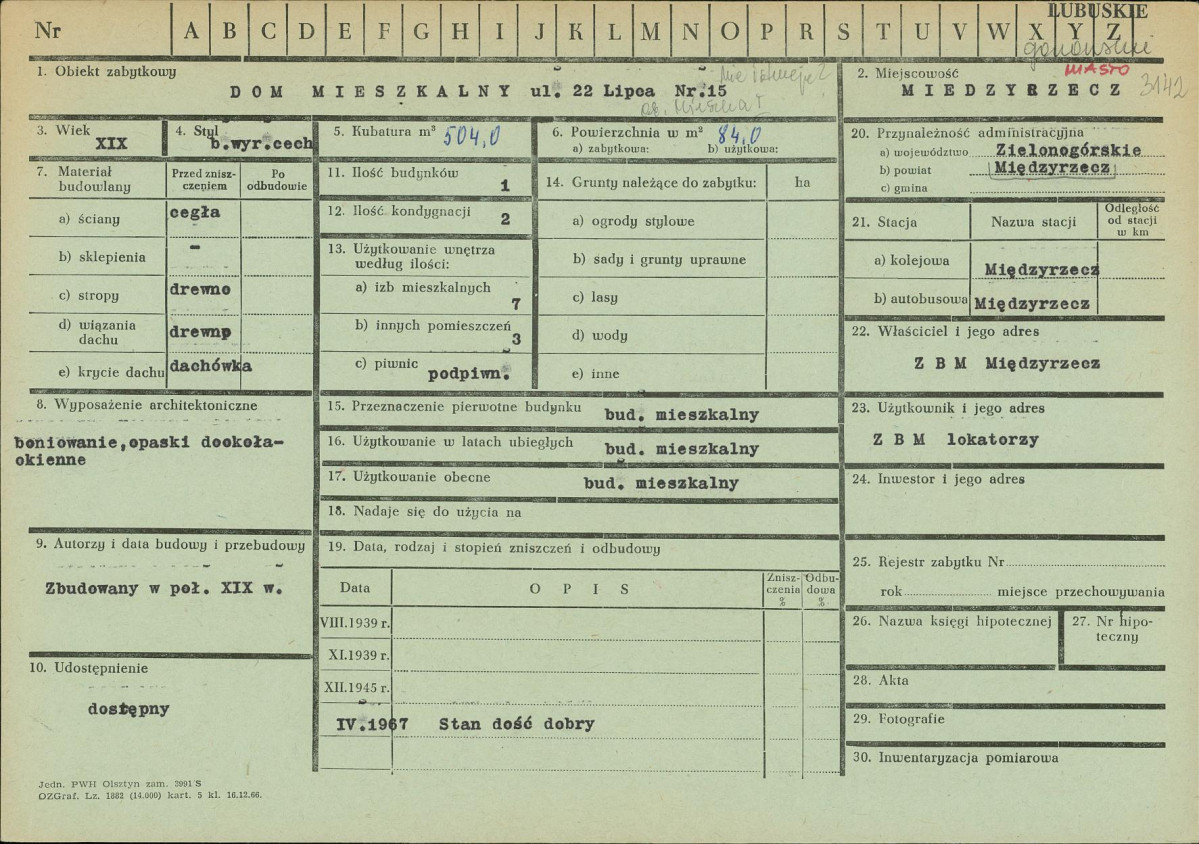 LUBUSKIE
Nr A B C D E F G H I J K L M N O P R S T U V W X Y Z
gorzowskie
MIASTO
3142
1. Obiekt zabytkowy
Nie istnieje?
DOM MIESZKALNY ul. 22 Lipca Nr.15
2. Miejscowość
MIEDZYRZECZ
3. Wiek
XIX
4. Styl
b.wyr.cech
5. Kubatura m³ 504,0
6. Powierzchnia w m² 84,0
a) zabytkowa: b) użytkowa:
7. Materiał budowlany
Przed zniszczeniem
Po odbudowie
a) ściany cegła
b) sklepienia –
c) stropy drewno
d) wiązania dachu drewnp
e) krycie dachu dachówka
8. Wyposażenie architektoniczne
boniowanie,opaski dookoła-
okienne
9. Autorzy i data budowy i przebudowy
Zbudowany w poł. XIX w.
10. Udostępnienie
dostępny
11. Ilość budynków 1
12. Ilość kondygnacji 2
13. Użytkowanie wnętrza
według ilości:
a) izb mieszkalnych 7
b) innych pomieszczeń 3
c) piwnic podpiwn.
14. Grunty należące do zabytku: ha
a) ogrody stylowe
b) sady i grunty uprawne
c) lasy
d) wody
e) inne
15. Przeznaczenie pierwotne budynku bud. mieszkalny
16. Użytkowanie w latach ubiegłych bud. mieszkalny
17. Użytkowanie obecne bud. mieszkalny
18. Nadaje się do użycia na
19. Data, rodzaj i stopień zniszczeń i odbudowy
Data OPIS Zniszczenia % Odbudowa %
VIII.1939 r.
XI.1939 r.
XII.1945 r.
IV.1967 Stan dość dobry
20. Przynależność administracyjna
a) województwo Zielonogórskie
b) powiat Międzyrzecz
c) gmina
21. Stacja Nazwa stacji Odległość od stacji w km
a) kolejowa Międzyrzecz
b) autobusowa Międzyrzecz
22. Właściciel i jego adres
Z B M Międzyrzecz
23. Użytkownik i jego adres
Z B M lokatorzy
24. Inwestor i jego adres
25. Rejestr zabytku Nr
rok miejsce przechowywania
26. Nazwa księgi hipotecznej
27. Nr hipo-
teczny
28. Akta
29. Fotografie
30. Inwentaryzacja pomiarowa
Jedn. PWH Olsztyn zam. 3991/S
OZGraf. Lz. 1882 (14.000) kart. 5 kl. 16.12.66.